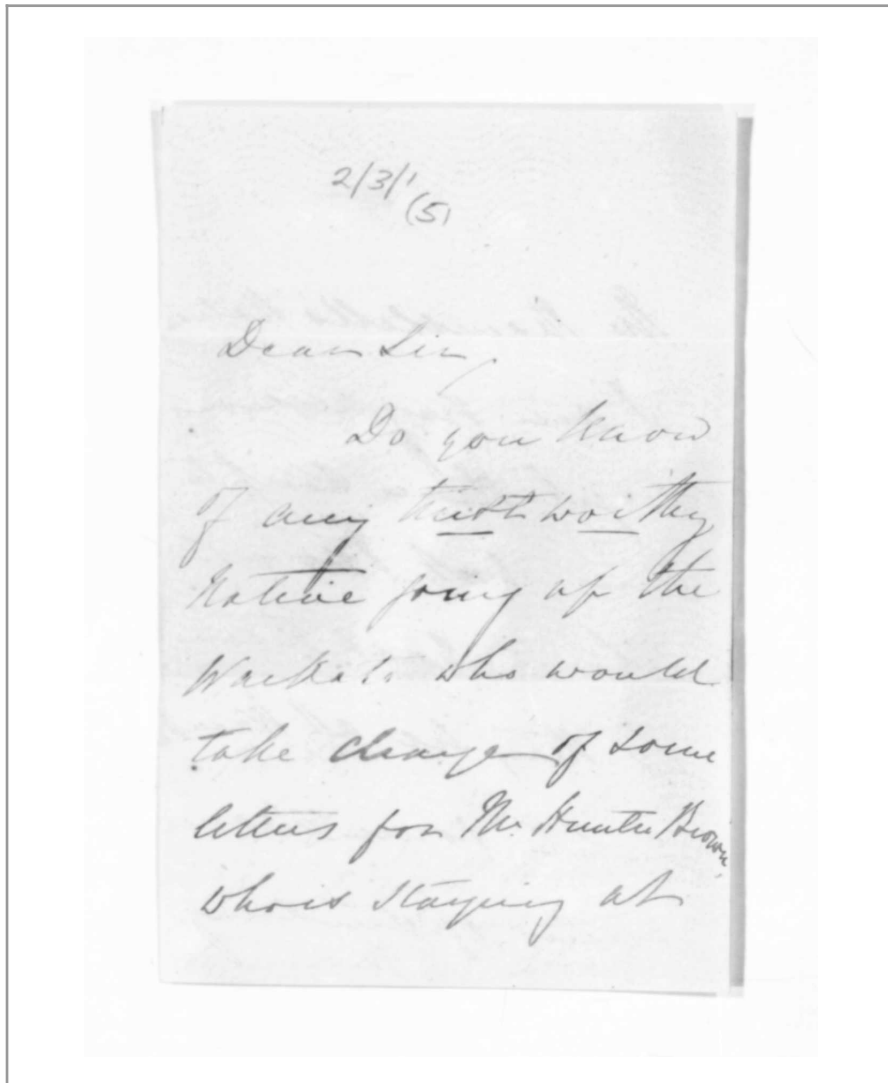 2/3/1
(5)
Dear Sir,
Do you know
of any trustworthy
Native going up the
Waikato who would
take charge of some
letters for Mr. Hunter Brown,
who is staying at